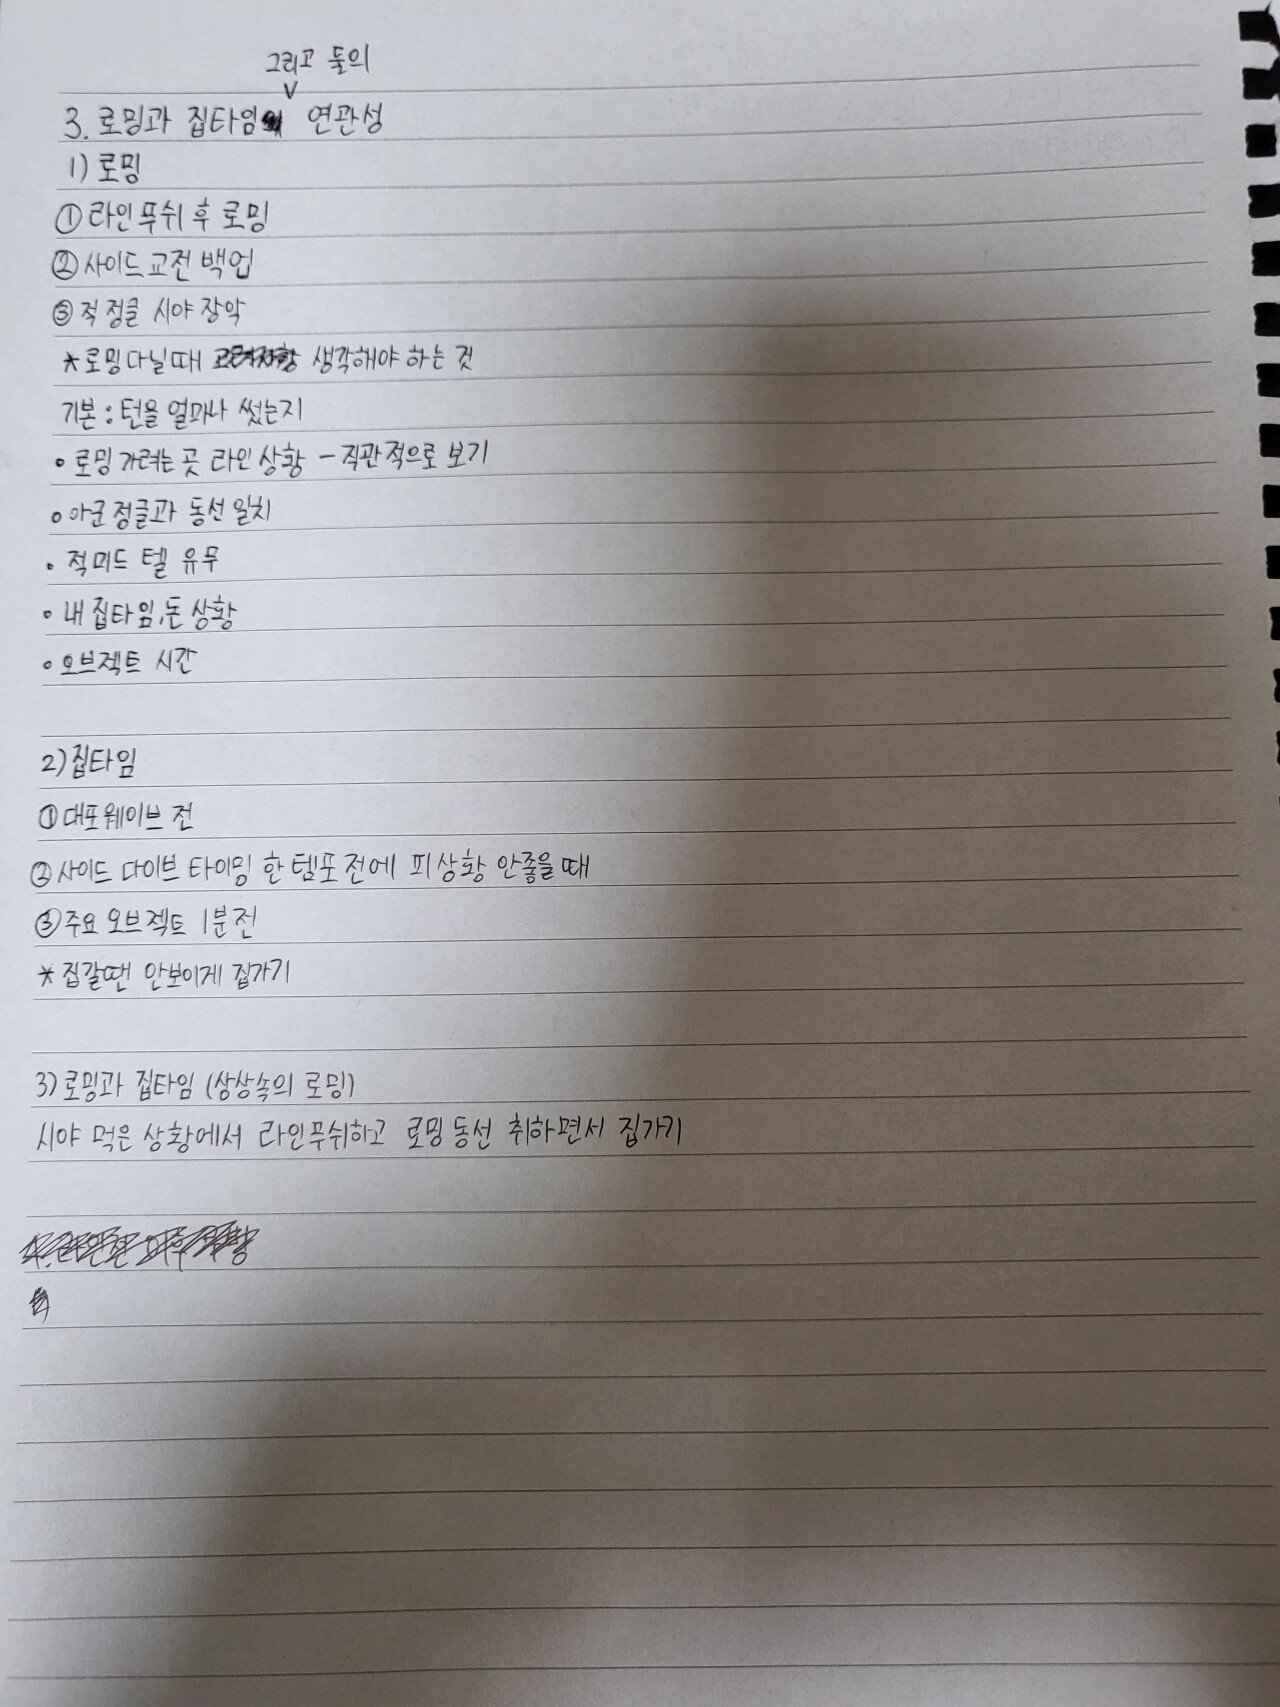 그리고 둘의
3. 로밍과 집타임 연관성
1) 로밍
① 라인푸쉬 후 로밍
② 사이드 교전 백업
③ 적 정글 시야 장악
* 로밍다닐때 생각해야 하는 것
기본 : 턴을 얼마나 썼는지
• 로밍 가려는 곳 라인 상황 - 직관적으로 보기
• 아군 정글과 동선 일치
• 적 미드 텔 유무
• 내 집타임, 돈 상황
• 오브젝트 시간
2) 집타임
① 대포웨이브 전
② 사이드 다이브 타이밍 한 템포 전에 피상황 안좋을때
③ 주요 오브젝트 1분전
* 집갈땐 안보이게 집가기
3) 로밍과 집타임 (상상속의 로밍)
시야 먹은 상황에서 라인푸쉬하고 로밍 동선 취하면서 집가기